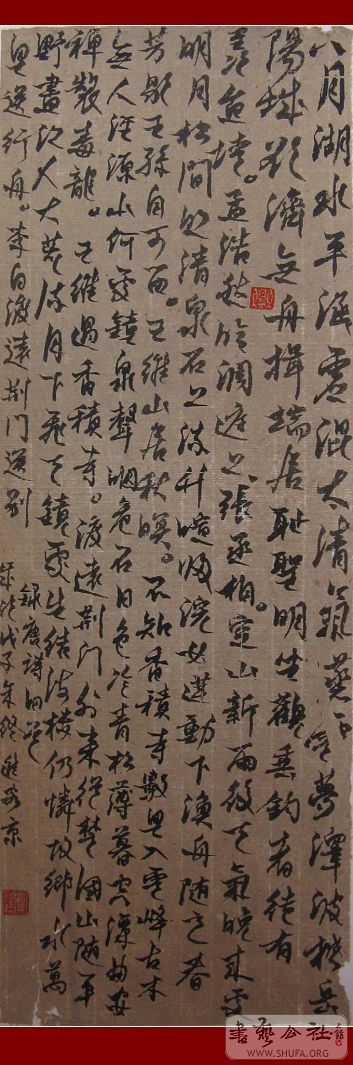 八月湖水平涵虚混太清氣蒸雲夢澤波撼岳
陽城欲濟無舟楫端居耻聖明坐觀垂釣者徒有
羡魚情。孟浩然臨洞庭上張丞相。空山新雨後天氣晚來秋
明月松間照清泉石上流竹喧歸浣女蓮動下漁舟随意春
芳歇王孫自可留。王維山居秋暝。不知香積寺數里入雲峰古木
無人徑深山何處鐘泉聲咽危石日色冷青松薄暮空潭曲安
禪製毒龍。王維過香積寺。渡遠荆門外來從楚國山随平
野盡江入大荒流月下飛天鏡雲生結海樓仍憐故鄉水萬
里送行舟。李白渡遠荆門送别
録唐詩四首
戊子年
書藝公社
WWW.SHUFA.ORG